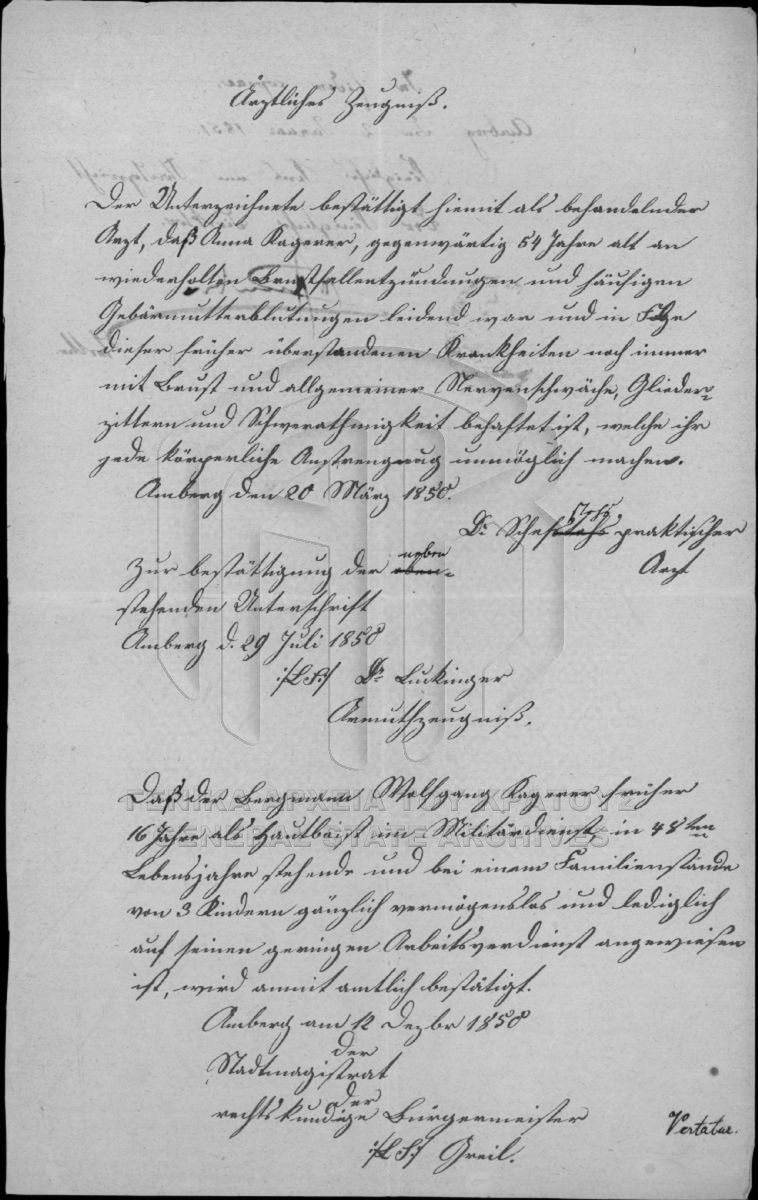 Ärztliches Zeugniß.
Der Unterzeichnete bestättigt hiemit als behandelnder
Arzt, daß Anna Kagerer, gegenwärtig 54 Jahre alt an
wiederholten Brustfellentzündungen und häufigen
Gebärmutterblutungen leidend war und in Folge
dieser früher überstandenen Krankheiten noch immer
mit Brust und allgemeiner Nervenschwäche, Glieder-
zittern und Schwerathmigkeit behaftet ist, welche ihr
jede körperliche Anstrengung unmöglich machen.
Amberg den 20 März 1850.
Dr praktischer
Arzt
Zur bestättigung der neben
stehenden Unterschrift
Amberg d. 29 Juli 1850
:/L S:/ Dr Luckinger
Armuthzeugniß.
Daß der Bergmann Wolfgang Kagerer früher
ΓΕΝΙΚΑ ΑΡΧΕΙΑ ΤΟΥ ΚΡΑΤΟΥΣ
16 Jahre als Hautboist im Militärdienst, in 48ten
GENERAL STATE ARCHIVES
Lebensjahre stehende und bei einem Familienstande
von 3 Kindern gänzlich vermögenslos und lediglich
auf seinen geringen Arbeitsverdienst angewiesen
ist, wird anmit amtlich bestätigt.
Amberg am 12 Dezbr 1850
der
Stadtmagistrat
der
rechtskundige Bürgermeister
:/L S:/ Greil.
Vertatur.